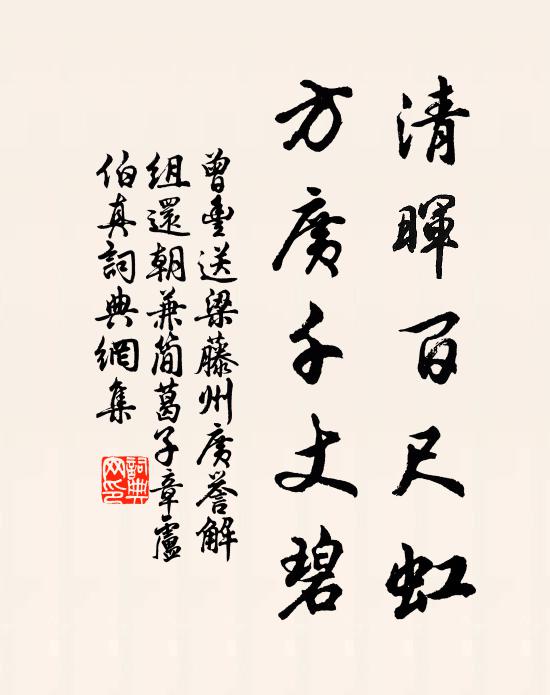 清暉百尺虹
方廣千丈碧
曾豊送梁藤州廣譽解
組還朝兼簡葛子章盧
伯真詞典網集
詞典網印